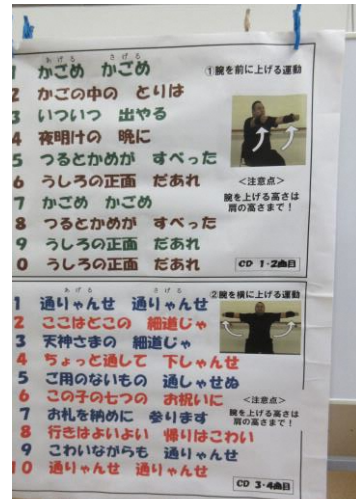 あげる さげる
1 かごめ かごめ
2 かごの中の とりは
3 いついつ 出やる
4 夜明けの 晩に
5 つるとかめが すべった
6 うしろの正面 だあれ
7 かごめ かごめ
8 つるとかめが すべった
9 うしろの正面 だあれ
0 うしろの正面 だあれ
①腕を前に上げる運動
<注意点>
腕を上げる高さは
肩の高さまで!
CD 1・2曲目
あげる さげる
1 通りゃんせ 通りゃんせ
2 ここはどこの 細道じゃ
3 天神さまの 細道じゃ
4 ちょっと通して 下しゃんせ
5 ご用のないもの 通しゃせぬ
6 この子の七つの お祝いに
7 お札を納めに 参ります
8 行きはよいよい 帰りはこわい
9 こわいながらも 通りゃんせ
10 通りゃんせ 通りゃんせ
②腕を横に上げる運動
<注意点>
腕を上げる高さは
肩の高さまで!
CD 3・4曲目